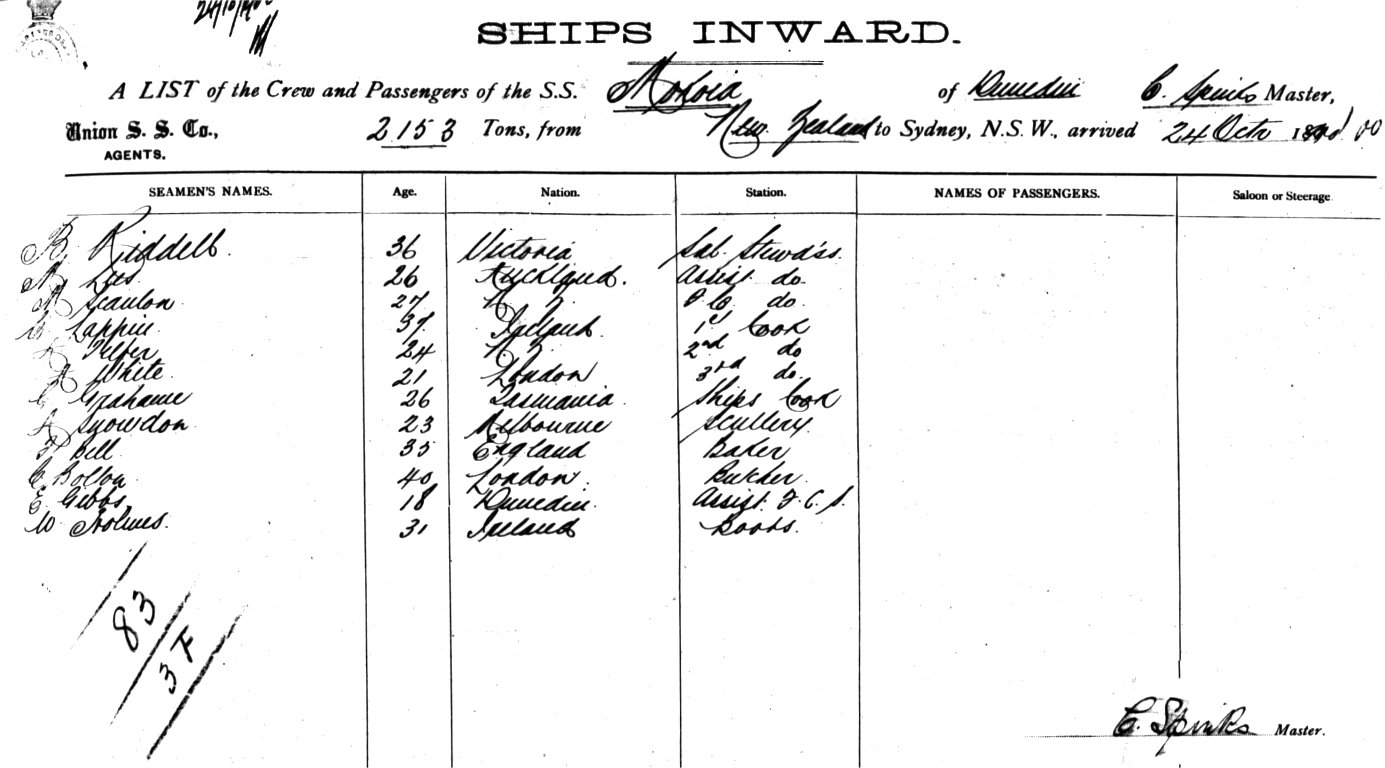 24/10/1900
SHIPS INWARD.
A LIST of the Crew and Passengers of the S.S. Mokoia of Dunedin C. Spinks Master,
Union S. S. Co., 2153 Tons, from New Zealand to Sydney, N.S.W., arrived 24 Octr 00
AGENTS.
SEAMEN'S NAMES. Age. Nation. Station. NAMES OF PASSENGERS. Saloon or Steerage
Riddell. 36 Victoria Sal. Stewd'ss.
Lees 26 Auckland. Assist do.
Scanlon 27 N Z. do
Lappin 37 Ireland. 1st Cook
Telfer 24 N. Z. 2nd do
White. 21 London 3rd do.
C Grahame 26 Tasmania. Ships Cook
Snowdon 23 Melbourne Scullery.
F Bell 35 England Baker
C. Bolton 40 London. Butcher.
E Gibbs 18 Dunedin. Assist. F. C. S.
W Holmes. 31 Ireland Boots.
83
3 F
C. Spinks Master.